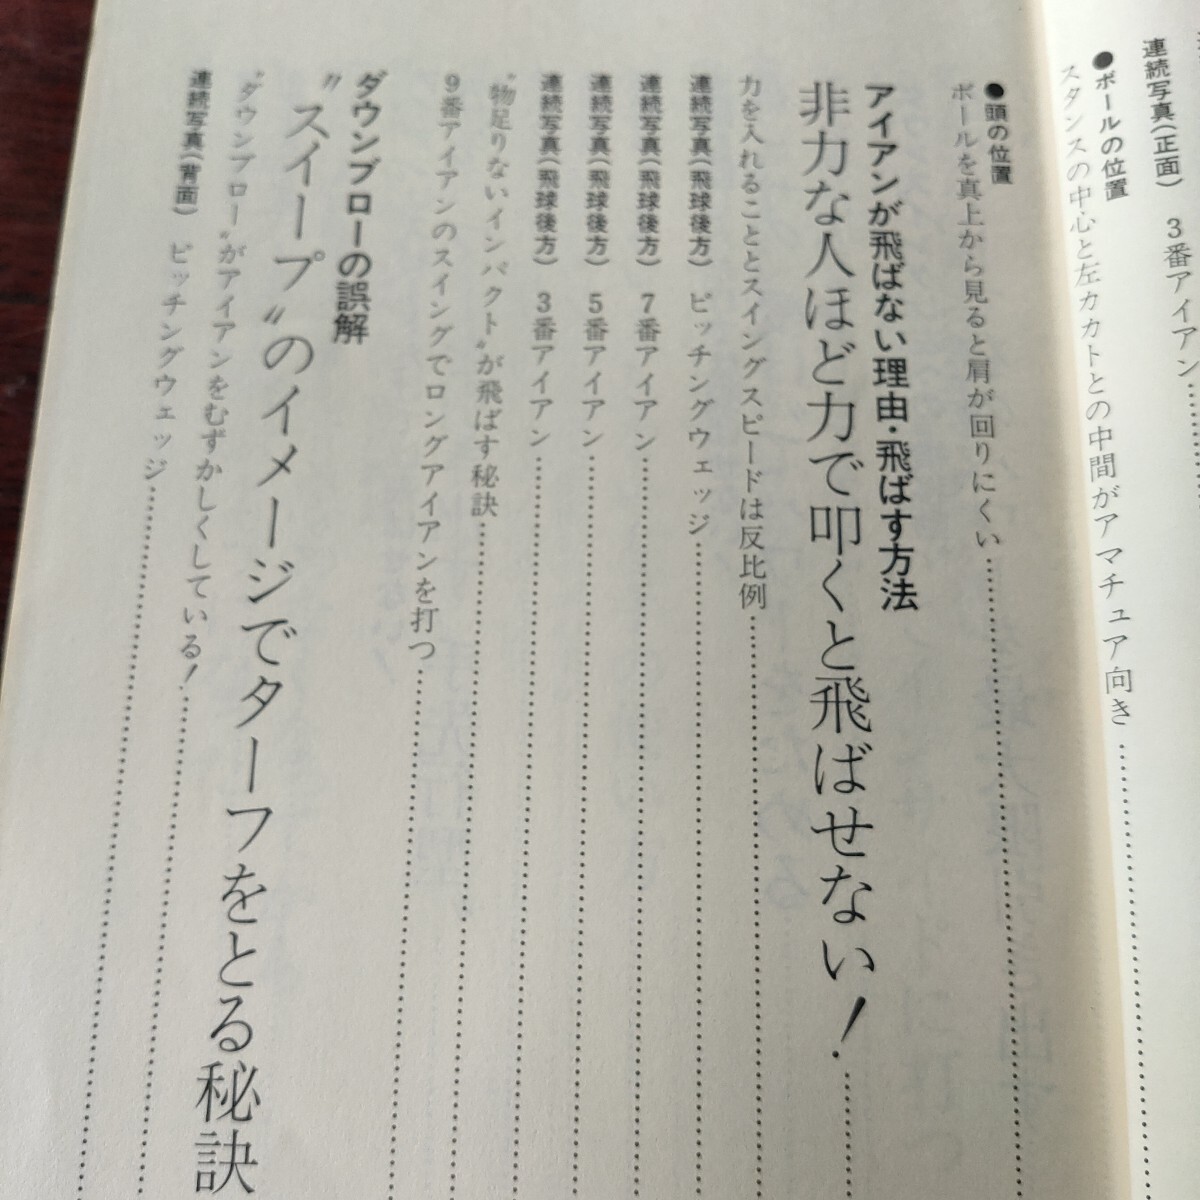 連続写真（正面） 3番アイアン
●ボールの位置
スタンスの中心と左カカトとの中間がアマチュア向き
●頭の位置
ボールを真上から見ると肩が回りにくい
アイアンが飛ばない理由・飛ばす方法
非力な人ほど力で叩くと飛ばせない！
力を入れることとスイングスピードは反比例
連続写真（飛球後方） ピッチングウェッジ
連続写真（飛球後方） 7番アイアン
連続写真（飛球後方） 5番アイアン
連続写真（飛球後方） 3番アイアン
〝物足りないインパクト〟が飛ばす秘訣
9番アイアンのスイングでロングアイアンを打つ
ダウンブローの誤解
〝スイープ〟のイメージでターフをとる秘訣
〝ダウンブロー〟がアイアンをむずかしくしている！
連続写真（背面） ピッチングウェッジ